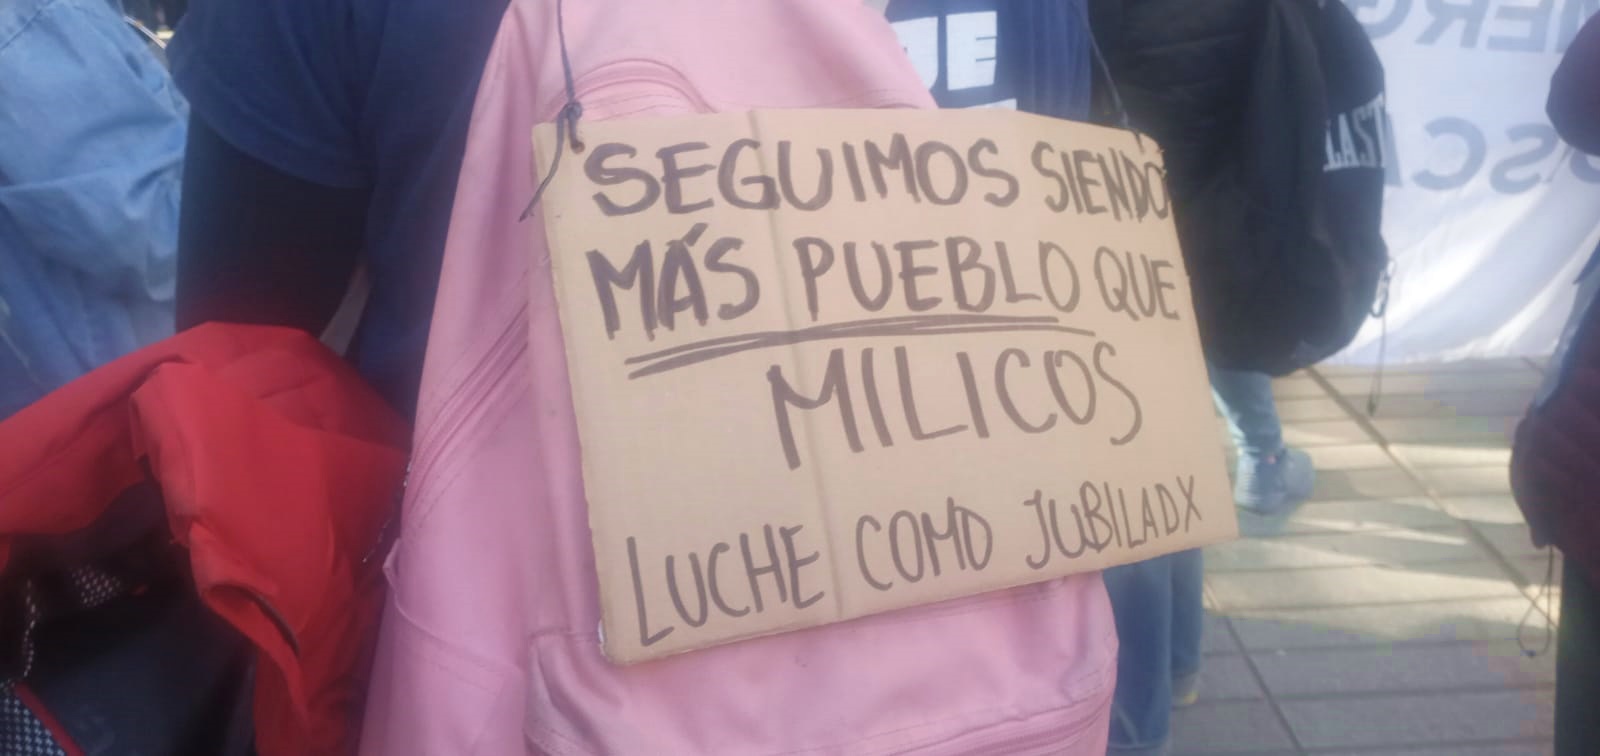 SEGUIMOS SIENDO
MÁS PUEBLO QUE
MILICOS
LUCHE COMO JUBILADX